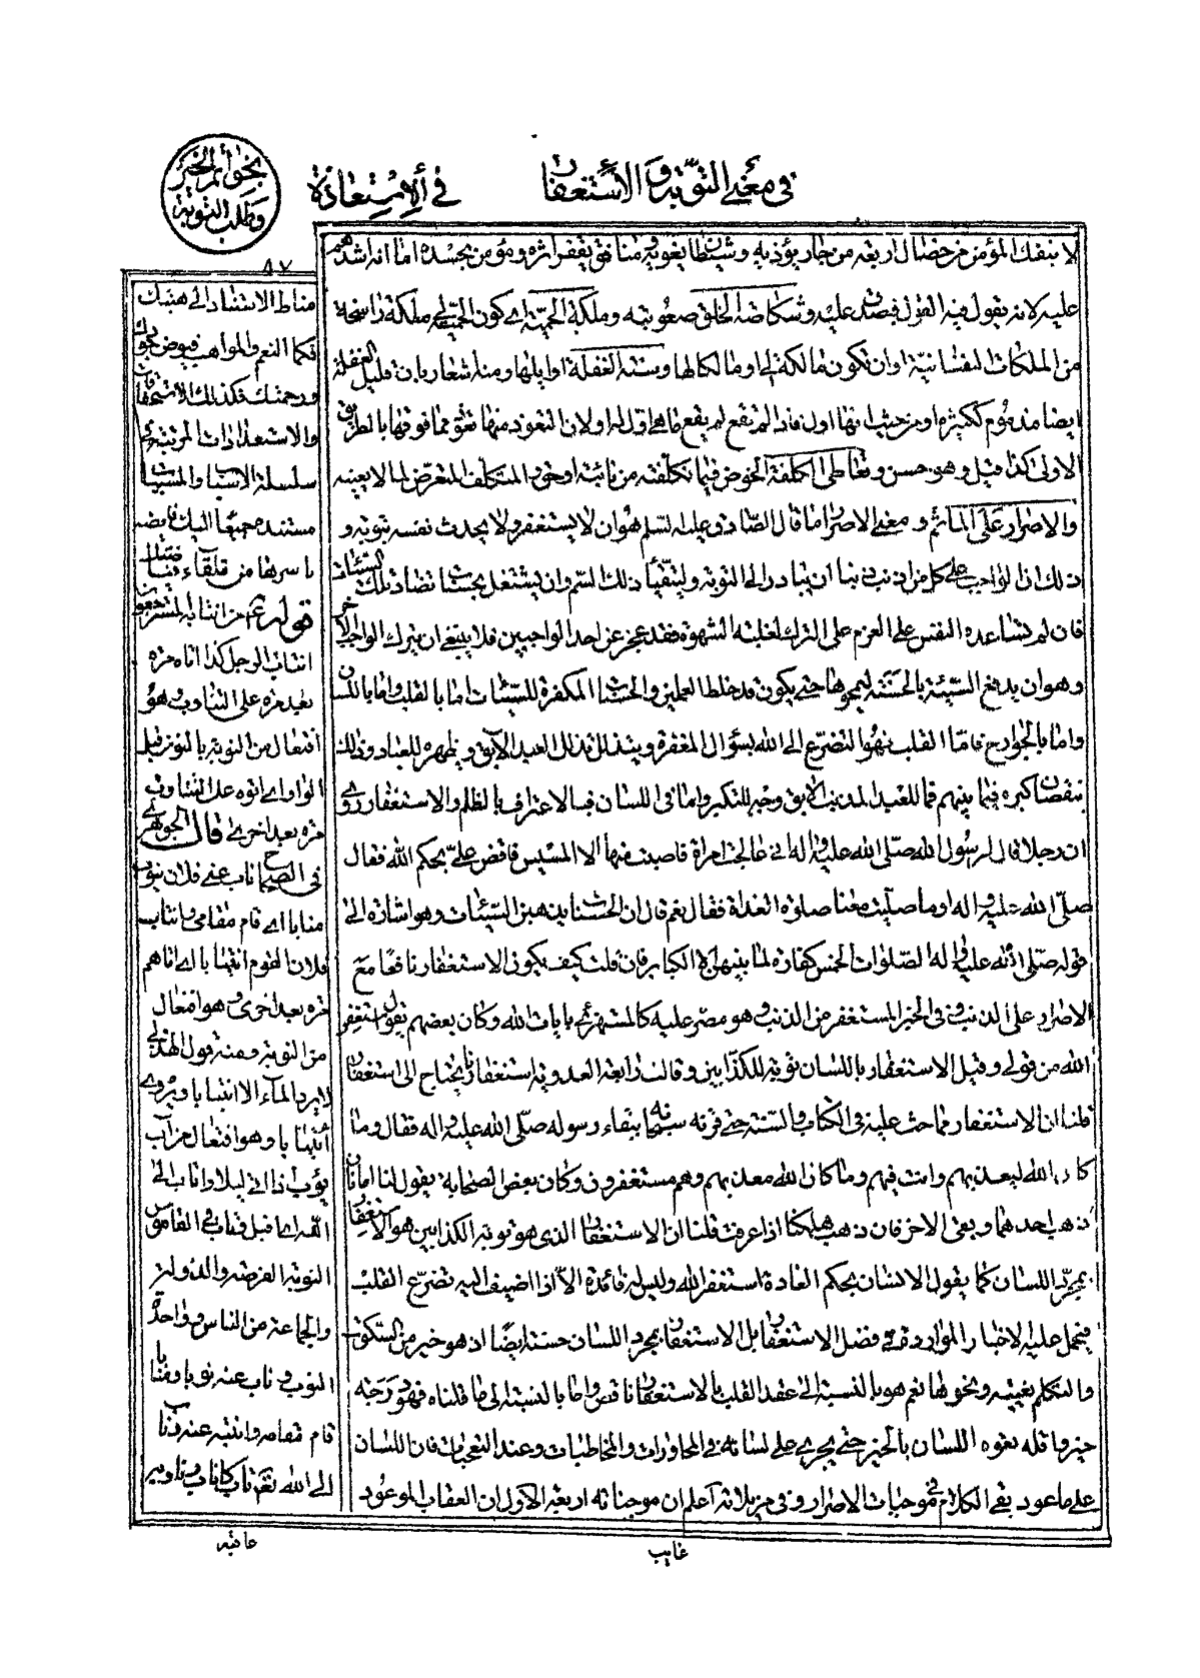 في معنى التوبة والاستغفار
في الاستعاذة
بخواتم الخير
وطلب التوبة
٨٧
لا ينفك المؤمن من خصال اربعة من جار يؤذيه وشيطان يغويه ومنافق يقفو اثره ومؤمن يحسده اما انه اشدهم
عليه لانه يقول فيه القول فيصدق عليه وشكاسة الخلق صعوبته وملكة الحمية اي كون الحمية ملكة راسخة
من الملكات النفسانية او ان تكون مالكة لي او مالكها وسنة الغفلة اوايلها ومنه اشعار بان قليل الغفلة
ايضا مذموم ككثيره او من حيث انها اول فاذا لم تقع لم يقع ما هي اول له اولان التعوذ منها تعوذ مما فوقها بالطريق
الاولى كذا قيل وهو حسن وتعاطي الكلفة الخوض فيما تكلفته من نائبة او حق والمتكلف المتعرض لما لا يعنيه
والاصرار على المآثم ومعنى الاصرار اما قال الصادق عليه السلم هو ان لا يستغفر ولا يحدث نفسه بتوبة و
ذلك ان الواجب على كل من اذنب ذنبا ان يبادر الى التوبة وليتقيأ ذلك السم وان يشتغل بحسنات تضاد تلك السيئات
فان لم تساعده النفس على العزم على الترك لغلبة الشهوة فقد عجز عن احد الواجبين فلا ينبغي ان يترك الواجب الاخر
وهو ان يدفع السيئة بالحسنة ليمحوها حتى يكون قد خلط العملين والحسنات المكفرة للسيئات اما بالقلب واما باللسان
واما بالجوارح فاما القلب فهو التضرع الى الله بسؤال المغفرة ويتذلل تذلل العبد الآبق ويظهره للعباد وذلك
بنقصان كبره فيما بينهم فما للعبد المذنب الآبق وجه للتكبر واما في اللسان فبالاعتراف بالظلم والاستغفار روي
ان رجلا قال لرسول الله صلى الله عليه واله اني عالجت امراة فاصبت منها الا المسيس فاقض علي بحكم الله فقال
صلى الله عليه واله اوما صليت معنا صلوة الغداة فقال نعم قال ان الحسنات يذهبن السيئات وهو اشارة الى
قوله صلى الله عليه واله الصلوات الخمس كفارة لما بينهن الا الكبائر فان قلت كيف يكون الاستغفار نافعا مع
الاصرار على الذنب وفي الخبر المستغفر من الذنب وهو مصر عليه كالمستهزئ بايات الله وكان بعضهم يقول استغفر
الله من قولي وقيل الاستغفار باللسان توبة للكذابين وقالت رابعة العدوية استغفارنا يحتاج الى استغفار
قلنا ان الاستغفار مما حث عليه في الكتاب والسنة حتى قرنه سبحانه ببقاء رسوله صلى الله عليه واله فقال وما
كان الله ليعذبهم وانت فيهم وما كان الله معذبهم وهم مستغفرون وكان بعض الصحابة يقول لنا امانان
ذهب احدهما وبقى الاخر فان ذهب هلكنا اذا عرفت قلنا ان الاستغفار الذي هو توبة الكذابين هو الاستغفار
بمجرد اللسان كما يقول الانسان بحكم العادة استغفر الله وليس له فائدة الا اذا اضيف اليه تضرع القلب
فيحمل عليه الاخبار الواردة في فضل الاستغفار بل الاستغفار بمجرد اللسان حسنة ايضا اذ هو خير من السكوت
والتكلم بغيبة ونحوها نعم هو بالنسبة الى عقد القلب بالاستغفار ناقص واما بالنسبة الى ما قلناه فهو درجة
خير وما قله تفوه اللسان بالخير حتى يجري على لسانه في المحاورات والمخاطبات وعند التعجبات فان اللسان
على ما عود بقي الكلام في موجبات الاصرار وفي مزيلاته اعلم ان موجباته اربعة الاول ان العقاب الموعود
غايب
مناط الاستناد الى هيبتك
فكما النعم والمواهب فيوض جودك
ورحمتك فكذلك الاستحقاقات
والاستعدادات المرتبة في
سلسلة الاسباب والمسببات
مستندة جميعا اليك فايضة
باسرها من تلقاء فياضيتك
قوله من انتابه المسترفدون
انتاب الرجل كذا اتاه مرة
بعد مرة على التناوب وهو
افتعال من النوبة بالنون قبل
الواو اي اتوه على التناوب
مرة بعد اخرى قال الجوهري
في الصحاح ناب عني فلان ينوب
منابا اي قام مقامي وانتاب
فلان القوم انتيابا اي اتاهم
مرة بعد اخرى وهو افتعال
من النوبة ومنه قول الهذلي
لا يرد الماء الا انتيابا ويروى
ائتيابا وهو افتعال من آب
يؤب اذا اتى ليلا واناب الى
الله اي اقبل وتاب وفي القاموس
النوبة الفرصة والدولة
والجماعة من الناس وواحدة
النوب وناب عنه نوبا ومنابا
قام مقامه وانبته عنه وناب
الى الله تعم تاب كاناب وناوبه
عاقبه